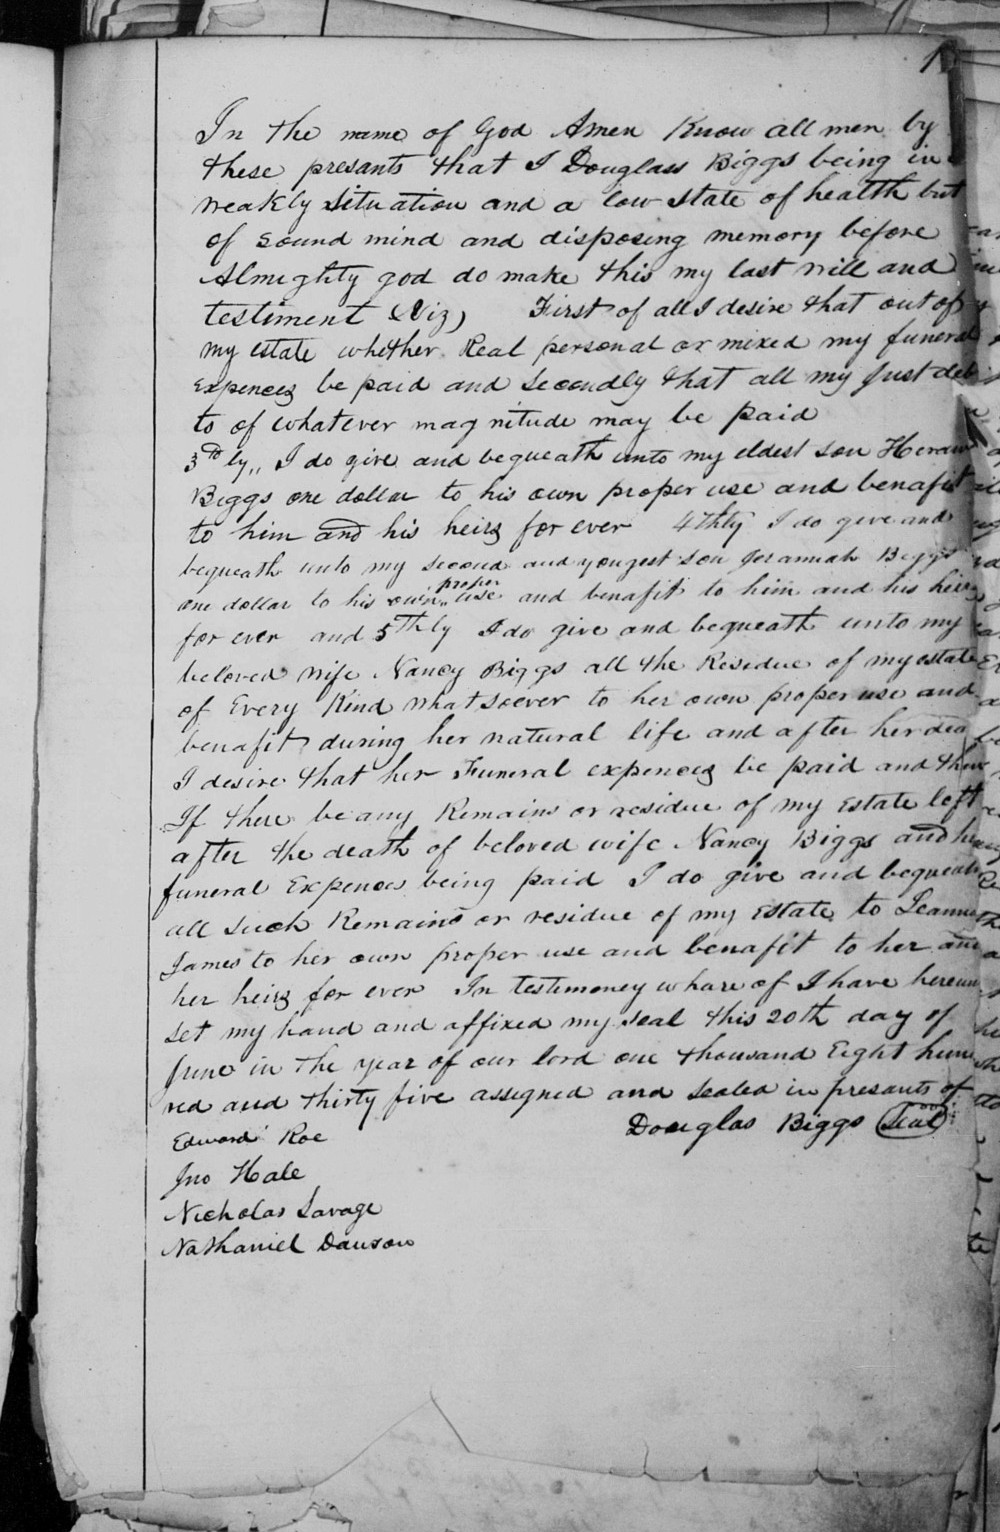 In the name of God Amen Know all men by
these presants that I Douglass Biggs being in
weakly situation and a low state of health but
of sound mind and disposing memory before
Almighty god do make this my last will and
testiment (Viz) First of all I desire that out of
my estate whether Real personal or mixed my funeral
expences be paid and secondly that all my just deb
ts of whatever magnitude may be paid
3rdly,, I do give and bequeath unto my eldest son Heram
Biggs one dollar to his own proper use and benafit
to him and his heirs for ever 4thly I do give and
bequeath unto my second and yongest son Jeramiah Biggs
one dollar to his own proper use and benafit to him and his heirs
for ever and 5thly I do give and bequeath unto my
beloved wife Nancy Biggs all the Residue of my estate
of Every Kind whatsoever to her own proper use and
benafit during her natural life and after her dea
I desire that her Funeral expences be paid and then
If there be any Remains or residue of my Estate left
after the death of beloved wife Nancy Biggs and her
funeral Expences being paid I do give and bequeath
all such Remains or residue of my Estate to Leanna
James to her own proper use and benafit to her and
her heirs for ever In testimoney whare of I have hereun
set my hand and affixed my seal this 20th day of
June in the year of our lord one thousand Eight hun
red and thirty five assigned and sealed in presants of
Douglas Biggs Seal
Edward Roe
Jno Hale
Nicholas Savage
Nathaniel Dawson